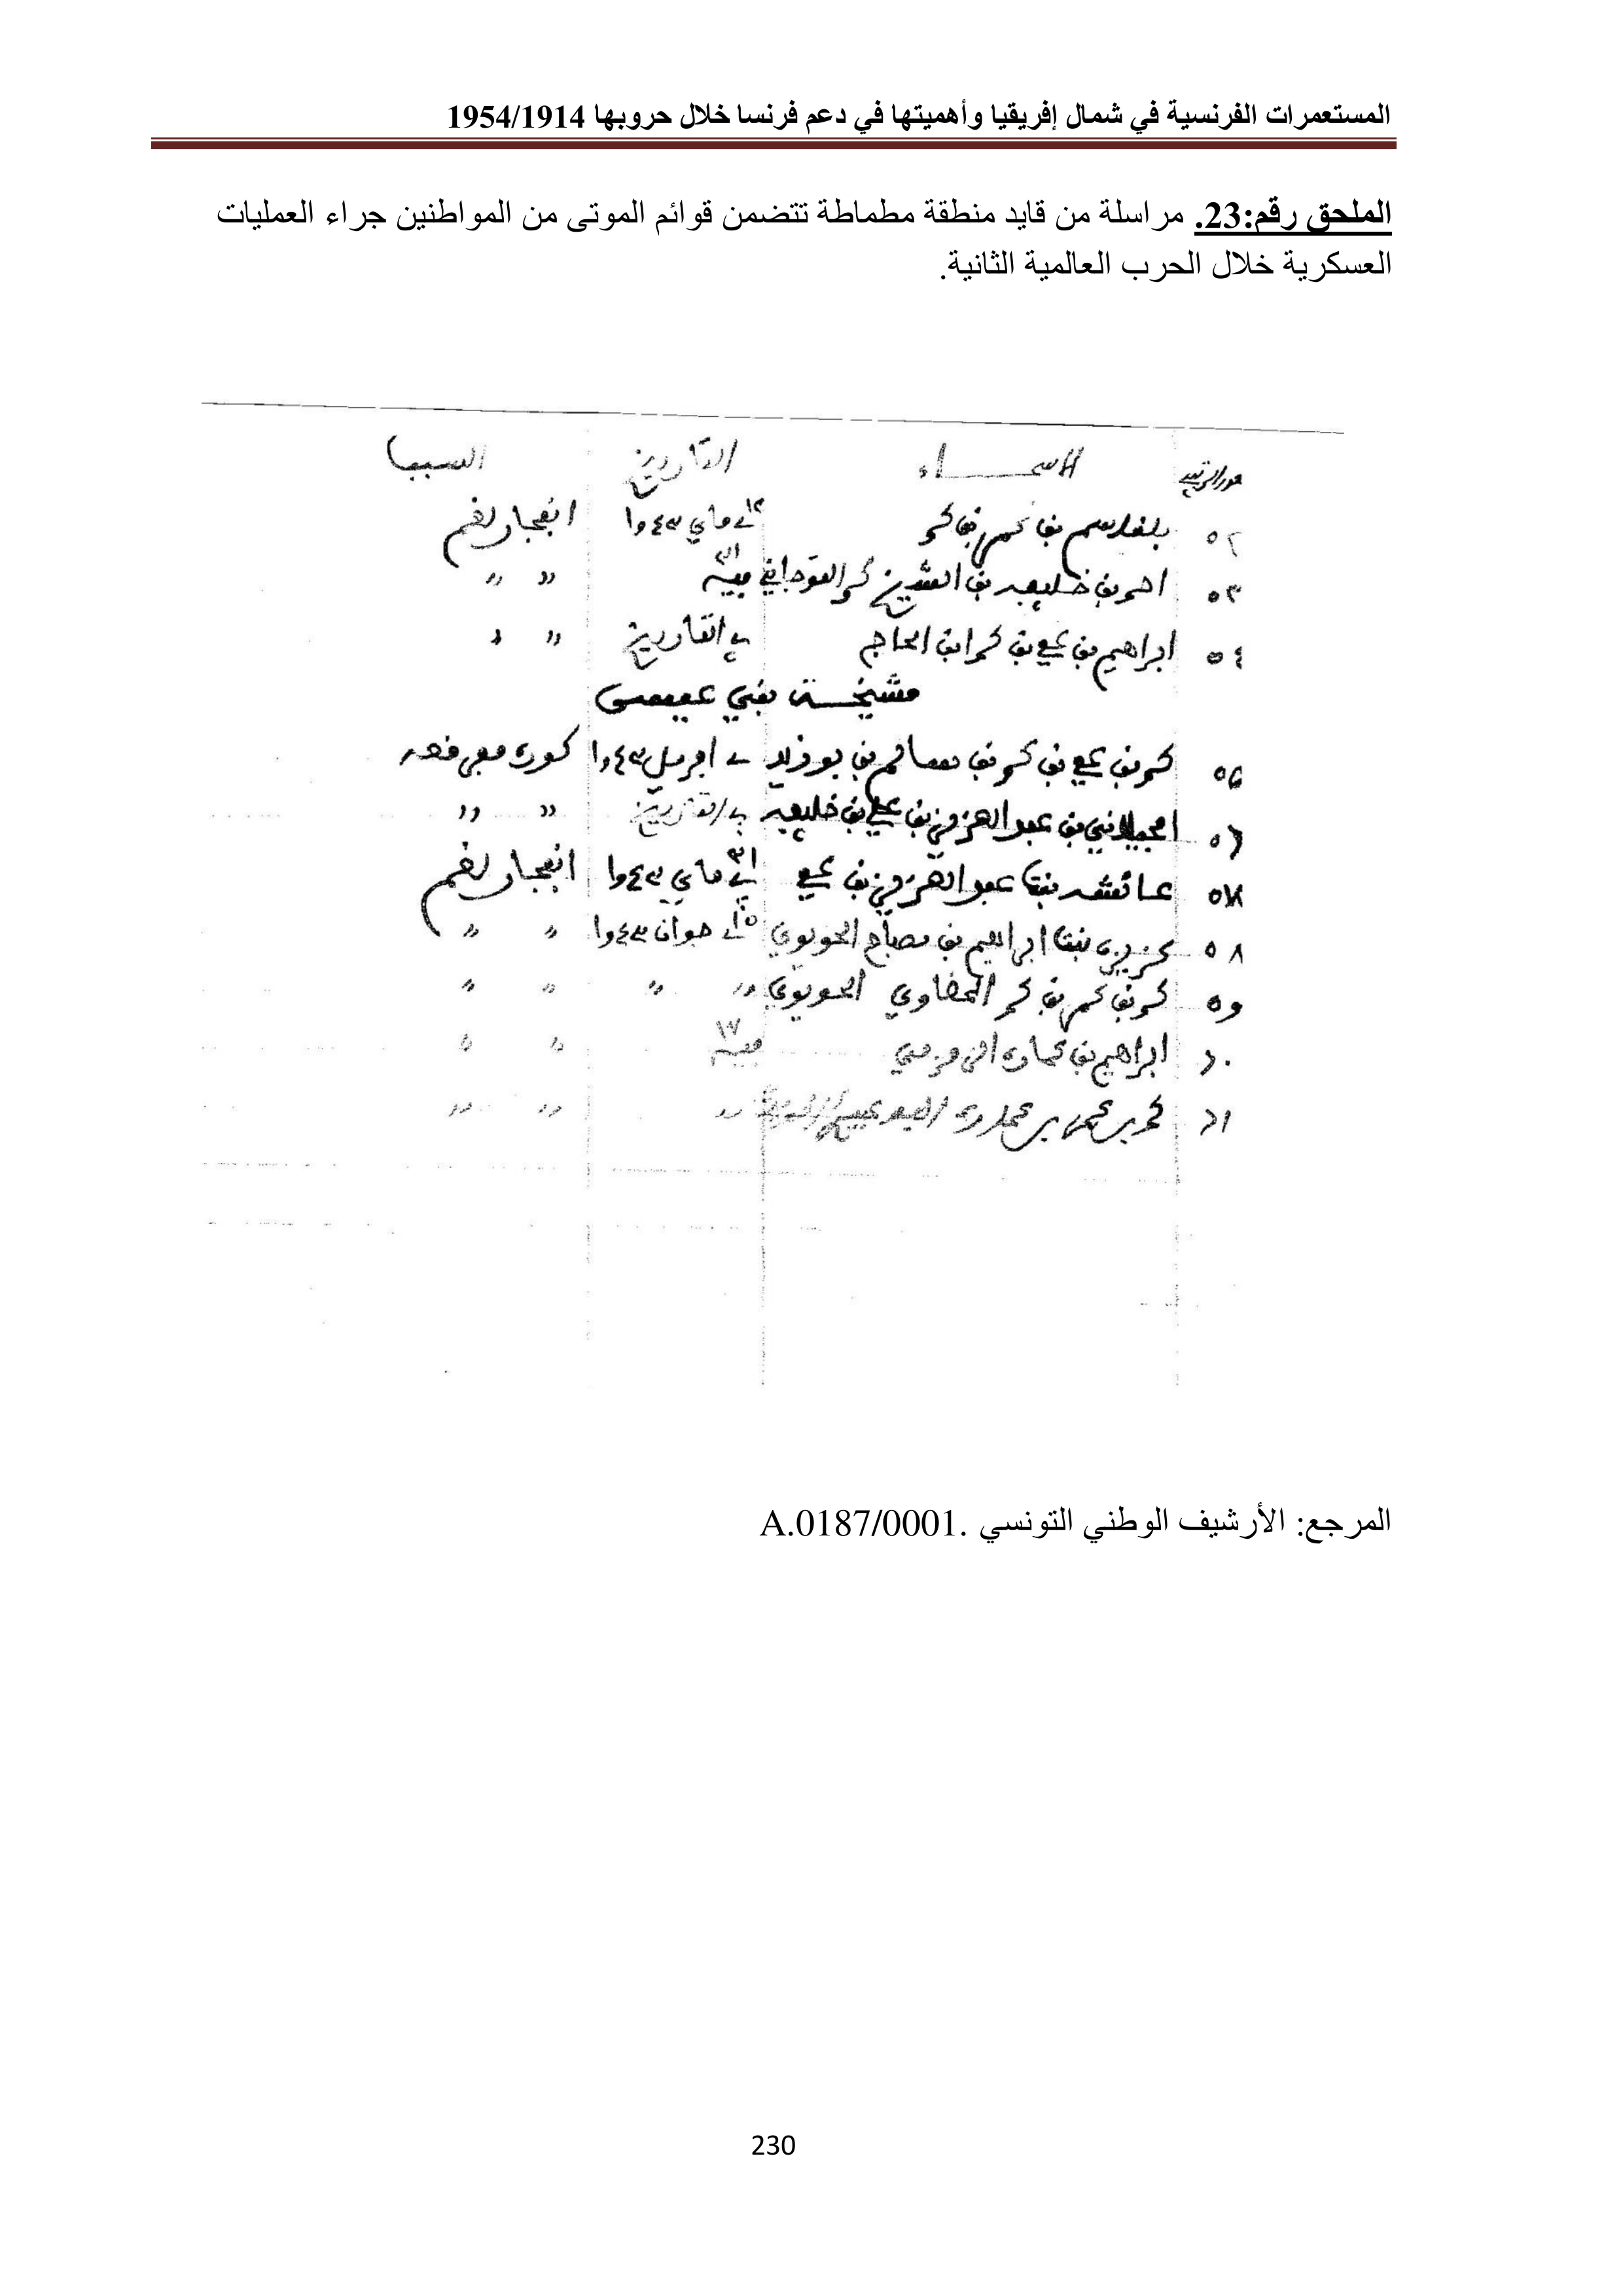 المستعمرات الفرنسية في شمال إفريقيا وأهميتها في دعم فرنسا خلال حروبها 1954/1914
الملحق رقم:23. مراسلة من قايد منطقة مطماطة تتضمن قوائم الموتى من المواطنين جراء العمليات
العسكرية خلال الحرب العالمية الثانية.
الاسماء التاريخ السبب
٥٢ بلقاسم بن بن محمد في ماي ١٩٤٣ انفجار لغم
٥٣ احمد بن خليفة بن الشيخ محمد ٣١ منه " "
٥٤ ابراهيم بن علي بن محمد ابن الحاج في التاريخ " "
مشيخة بني عيسى
٥٥ محمد بن علي بن محمد بن سالم بن بوزيد في افريل ١٩٤٣ كورة مدفع
٥٦ الجيلاني بن عبد العزيز بن علي بن خليفة في التاريخ " "
٥٧ عائشة بنت عبد العزيز بن علي ٣١ في ماي ١٩٤٣ انفجار لغم
٥٨ بنت ابراهيم بن مصباح الحويوي في جوان ١٩٤٣ " "
٥٩ محمد بن بن محمد الحويوي " " " "
٦٠ ابراهيم بن ١٧ منه " "
٦١ محمد بن بن " " "
المرجع: الأرشيف الوطني التونسي .A.0187/0001
230